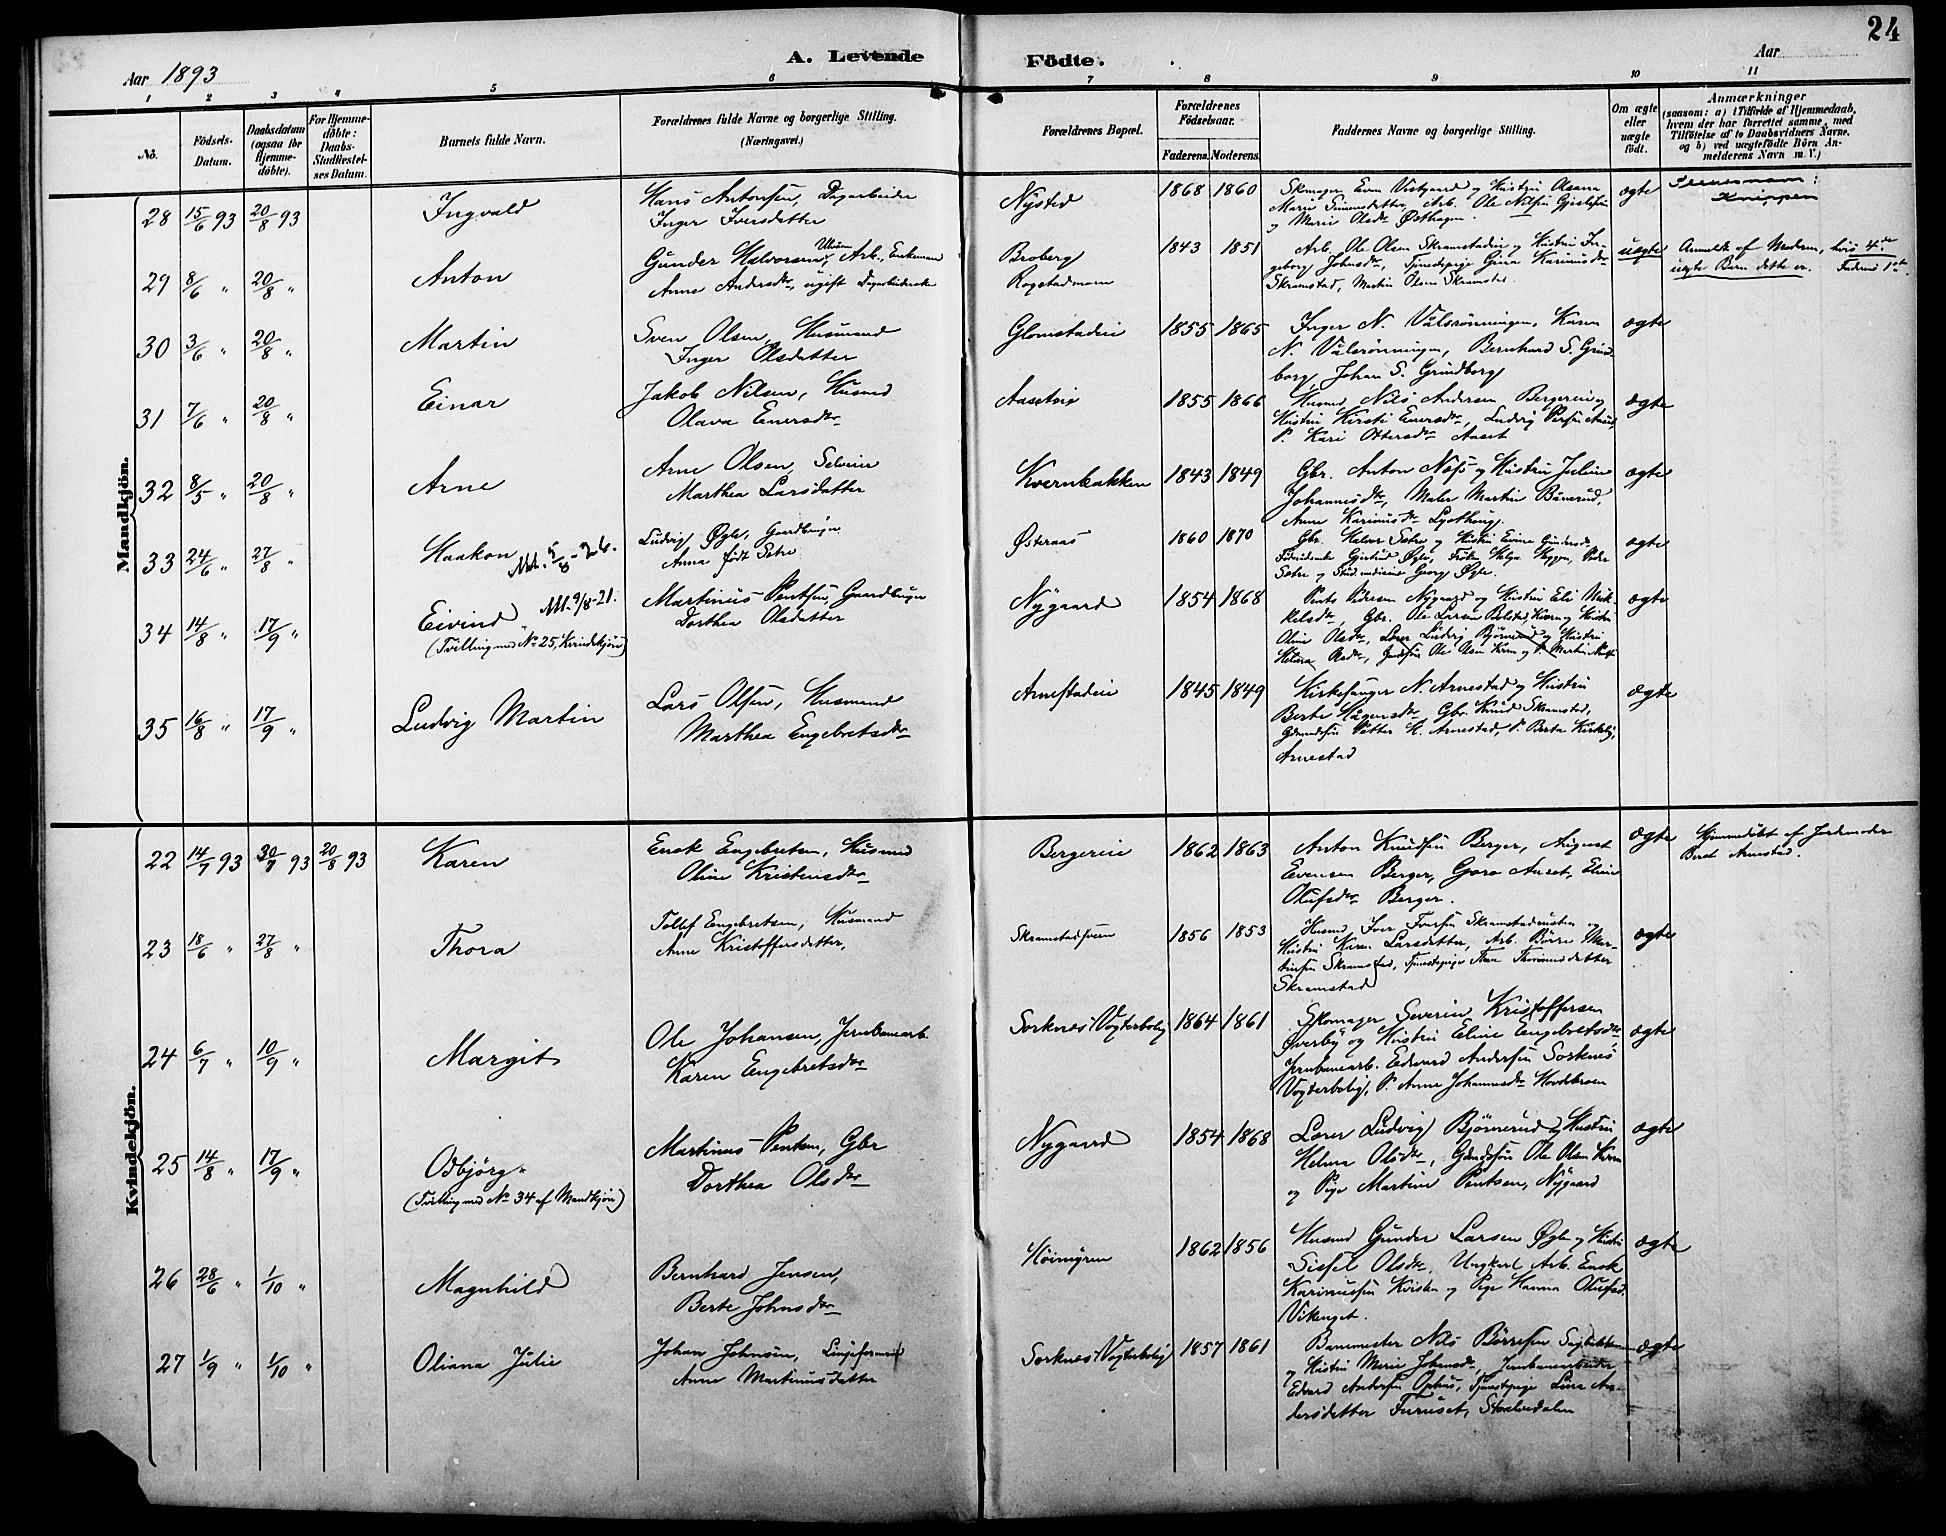 24
Aar 1893
A. Levende Födte.
Aar
1 2 3 4 5 6 7 8 9 10 11
No.
Födsels-Datum.
Daabsdatum (ogsaa for Hjemme-døbte).
For Hjemme-døbte: Daabs-Stadfæstel-ses Datum.
Barnets fulde Navn.
Forældrenes fulde Navne og borgerlige Stilling.
(Næringsvei.)
Forældrenes Bopæl.
Forældrenes Födselsaar.
Faderens. Moderens.
Faddernes Navne og borgerlige Stilling.
Om ægte eller uægte født.
Anmærkninger
(saasom: a) i Tilfælde af Hjemmedaab, hvem der har forrettet samme, med Tilføtelse af to Daabsvidners Navne. og b) ved uægtefødte Börn An-melderens Navn m. V.)
Mandkjön.
28 15/6 93 20/8 93 Ingvald
Hans Antonsen, Dagarbeider
Inger Iversdatter
Nysted 1868 1860
Skomager Even Vestgaard og Hustru Oleana
Marie Simensdatter, Arb. Ole Nilsen
og Marie Olsdtr Østhagen.
ægte
Knippen
29 8/6 " 20/8 " Anton
Gunder Halvorsen, Arb., Enkemand
Anne Andersdtr, ugift Dagarbeiderske
Broberg
Rogstadmoen
1843 1851
Arb. Ole Olsen Skramstadeie og Hustru In-
geborg Johnsdtr, Tjenestepige Gina Karinusdtr
Skramstad, Martin Olsen Skramstad.
uægte
Anmeldt af Moderen, hvis 4de
uægte Barn dette er. Faderens 1ste.
30 3/6 " 20/8 " Martin
Sven Olsen, Husmand
Inger Olsdatter
Glomstadeie 1855 1865
Inger N. Vålsrønningen, Karen
N. Vålsrønningen, Bernhard S. Gründ-
borg, Johan S. Gründborg
ægte
31 7/6 " 20/8 " Einar
Jakob Nilsen, Husmd
Olava Enersdtr
Aasetvig 1855 1866
Husmd Nils Andersen Bergereie og
Hustru Kirsti Enersdtr, Ludvig Persen Aaset,
P. Kari Ottersdtr Aaset
ægte
32 8/5 " 20/8 " Arne
Arne Olsen, Selveier
Marthea Larsdatter
Kvernbakken 1843 1849
Gbr. Anton Næss og Hustru Juline
Johannesdtr, Maler Martin Bånerud,
Anne Karinusdtr
ægte
33 24/6 " 27/8 " Haakon
5/8-26.
Ludvig Øgle, Gaardbruger
Anna født Sætre
Østeraas 1860 1870
Gbr. Halvor Sætre og Hustru Eveine Gundersdtr,
Øgle, Frøken Helga, Peder
Sætre og Stud. medicine Georg Øgle.
ægte
34 14/8 " 17/9 " Eivind
9/8-21.
(Tvilling med No 25, Kvindekjön)
Martinus Pentsen, Gaardbruger
Dorthea Olsdatter
Nygaard 1854 1868
Pents Pedersen Nygaard og Hustru Eli Mik-
kelsdtr, Gbr. Ole Larsen Bolstad, Hustru
Oline Olsdtr, Lærer Ludvig Bjørnerud og Hustru
Helma Olsdtr, Ole Olsen
ægte
35 16/8 " 17/9 " Ludvig Martin
Lars Olsen, Husmand
Marthea Engebretsdtr
Arnestadeie 1845 1849
Kirkesanger N. Arnestad og Hustru
Berte Hågensdtr, Gbr. Knud Skramstad,
Gdmandssøn Petter K. Arnestad, P. Berta Kirkeby,
Arnestad
ægte
Kvindekjön.
22 14/7 93 30/7 93 20/8 93 Karen
Enok Engebretsen, Husmd
Oline Kristensdtr
Bergereie 1862 1863
Anton Knudsen Berger, August
Evensen Berger, Goro Aaset, Eline
Olufsdtr Berger.
ægte
Hjemmedøbt af Jordemoder
Beret Arnestad.
23 18/6 " 27/8 " Thora
Tollef Engebretsen, Husmand
Anne Kristoffersdatter,
1856 1853
Husmd Iver Iversen og
Hustru Karen Larsdatter, Arb. Børre Mar-
tinsen Skramstad, Tjenestepige Thea
Skramstad
ægte
24 6/7 " 10/9 " Margit
Ole Johansen, Jernbanearb.
Karen Engebretsdtr
Sorknæs Vogterbolig 1864 1861
Skomager Severin Kristoffersen
Øverby og Hustru Eline Engebretsdtr
Jernbanearb. Edvard Andersen Sorknæs
Vogterbolig, P. Anne Johannesdtr
ægte
25 14/8 " 17/9 " Odbjörg
(Tvilling med No 34 af Mandkjön)
Martinus Pentsen, Gbr
Dorthea Olsdtr
Nygaard 1854 1868
Lærer Ludvig Bjørnerud og Hustru
Helma Olsdtr, Gdmdssøn Ole Olsen
og Pige Martine Pentsen, Nygaard
ægte
26 28/6 " 1/10 " Magnhild
Bernhard Jensen,
Berte Johnsdtr
1862 1856
Husmd Gunder Larsen Øgle og Hustru
Sissel Olsdtr, Ungkarl Arb. Enok
Karinussen og Pige Hanna Olufsd.
Vikenget.
ægte
27 1/9 " 1/10 " Oliana Julie
Johan Johnsen, Linjeformand
Anne Martinusdatter
Sorknæs Vogterbolig 1857 1861
Banemester Nils Børresen
og Hustru Marie Johansdtr, Jernbanearbeider
Edvard Andersen Ophus, Tjenestepige Lina An-
dersdatter Furuset,
ægte